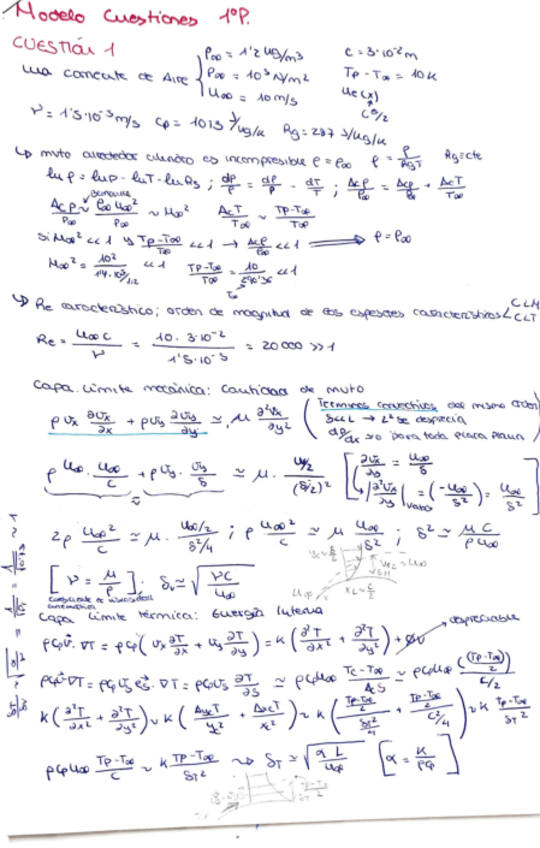 Modelo Cuestiones 1ºP.
CUESTIÓN 1
una corriente de Aire { ρ∞ = 1'2 kg/m3 c = 3·10⁻² m
P∞ = 10⁵ N/m² Tp - T∞ = 10 K
u∞ = 10 m/s ue(x)
ν = 1'5·10⁻⁵ m/s cp = 1013 J/kg/K Rg = 287 J/kg/K
↳ mvto alrededor cilindro es incompresible ρ = ρ∞ ρ = P/RgT Rg = cte
ln ρ = ln P - ln T - ln Rg ; dρ/ρ = dP/P - dT/T ; Δcρ/ρ∞ = Δcp/P∞ + ΔcT/T∞
Δcp/P∞ ~ ρ∞ u∞²/P∞ ~ M∞² ΔcT/T∞ ~ Tp-T∞/T∞
Si M∞² <<1 y Tp-T∞/T∞ <<1 → Δcρ/ρ∞ <<1 ⟹ ρ = ρ∞
<<1 Tp-T∞/T∞ = <<1
↳ Re característico; orden de magnitud de los espesores característicos < CLM
CLT
Re = u∞ c/ν = 10 · 3·10⁻²/1'5·10⁻⁵ = 20000 >>1
Capa límite mecánica: Cantidad de mvto
ρ vx ∂vx/∂x + ρ vy ∂vx/∂y ≃ μ ∂²vx/∂y² ( Términos convectivos del mismo orden
δ<<L → L² se desprecia
dp/dx = 0 para toda placa plana )
ρ u∞ · u∞/c + ρ vy · /δ ≃ μ · /(δ/2)² [ ∂vx/∂y = u∞/δ
= (-u∞/δ²) = u∞/δ² ]
2ρ u∞²/c ≃ μ · u∞/2/δ²/4 ; ρ u∞²/c ≃ μ u∞/δ² ; δ² ≃ μ c/ρ u∞
[ ν = μ/ρ ] ; δv ≃ √(νc/u∞)
Capa límite térmica: Energía Interna
despreciable
ρ cp v⃗ · ∇T = ρ cp ( vx ∂T/∂x + vy ∂T/∂y ) = K ( ∂²T/∂x² + ∂²T/∂y² ) + ϕv
ρ cp v⃗ · ∇T = ρ cp vs e⃗s · ∇T = ρ cp vs ∂T/∂s ≃ ρ cp u∞ Tc-T∞/ΔcS ≃ ρ cp u∞ ((Tp-T∞)/2)/c/2
K ( ∂²T/∂x² + ∂²T/∂y² ) ~ K ( ΔycT/yc² + ΔxcT/xc² ) ~ K ( Tp-T∞/2/δT²/4 + Tp-T∞/2/c²/4 ) ~ K Tp-T∞/δT²
ρ cp u∞ Tp-T∞/c ~ K Tp-T∞/δT² ⇝ δT ≃ √(α L/u∞) [ α = K/ρcp ]